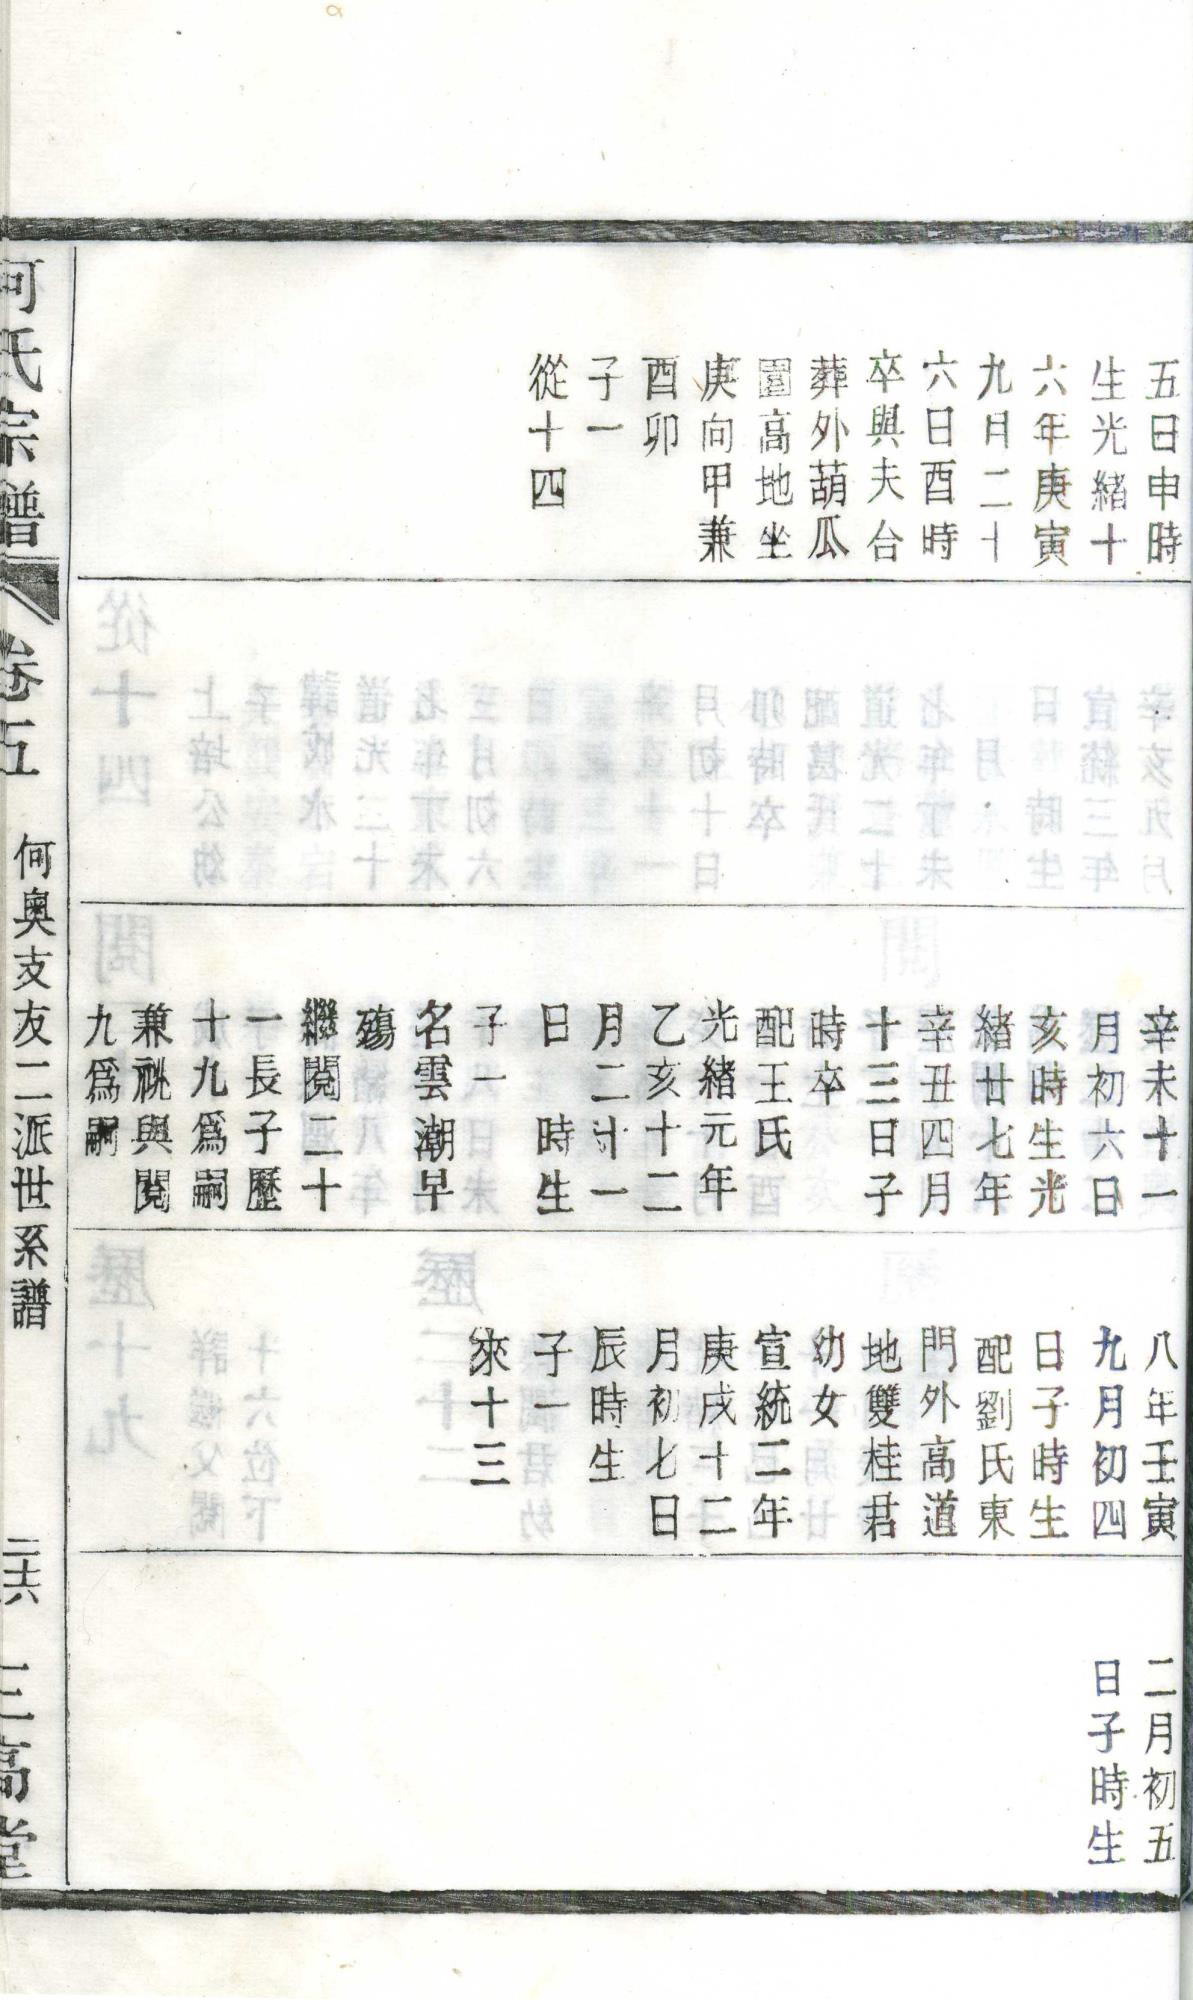 五日申時
生光緒十
六年庚寅
九月二十
六日酉時
卒與夫台
葬外葫瓜
園高地坐
庚向甲兼
酉卯
子一
從十四
辛未十一
月初六日
亥時生光
緒廿七年
辛丑四月
十三日子
時卒
配王氏
光緒元年
乙亥十二
月二十一
日 時生
子一
名雲潮早
殤
繼閱二十
一長子歷
十九爲嗣
兼祧與閱
九爲嗣
八年壬寅
九月初四
日子時生
配劉氏東
門外高道
地雙桂君
幼女
宣統二年
庚戌十二
月初七日
辰時生
子一
來十三
二月初五
日子時生
何氏宗譜
卷五
何奧支友二派世系譜
二十六
三高堂